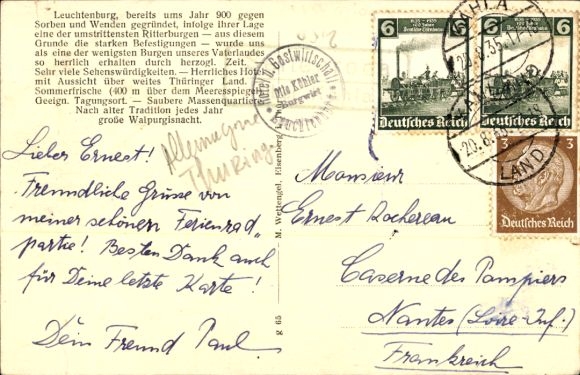 Leuchtenburg, bereits ums Jahr 900 gegen
Sorben und Wenden gegründet, infolge ihrer Lage
eine der umstrittensten Ritterburgen — aus diesem
Grunde die starken Befestigungen — wurde uns
als eine der wenigsten Burgen unseres Vaterlandes
so herrlich erhalten durch herzogl. Zeit.
Sehr viele Sehenswürdigkeiten. — Herrliches Hotel
mit Aussicht über weites Thüringer Land.
Sommerfrische (400 m über dem Meeresspiegel)
Geeign. Tagungsort. — Saubere Massenquartiere
Nach alter Tradition jedes Jahr
große Walpurgisnacht.
Hotel u. Gastwirtschaft
Otto Köhler
Burgwirt
Leuchtenburg
Allemagne
Thüringe
Lieber Ernest!
Freundliche Grüsse von
meiner schönen Ferienrad„
partie! Besten Dank auch
für Deine letzte Karte!
Dein Freund Paul
g 65
M. Wehengel, Eisenberg
6
6
1835 1935
100 Jahre
Deutsche Eisenbahn
Deutsches Reich
Deutsches Reich
3
3
Deutsches Reich
KAHLA
20.8.35
KAHLA
20.8.35
LAND
Monsieur
Ernest Rochereau
Caserne des Pompiers
Nantes (Loire-Inf.)
Frankreich